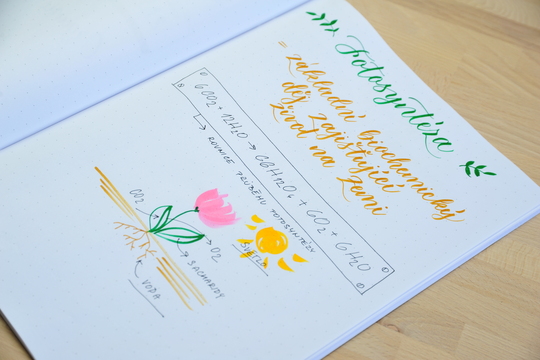 Fotosyntéza
= základní biochemický
děj zajišťující
život na Zemi
6CO2 + 12H2O → C6H12O6 + 6O2 + 6H2O
ROVNICE PRŮBĚHU FOTOSYNTÉZY
CO2
SVĚTLO
O2
SACHARIDY
VODA